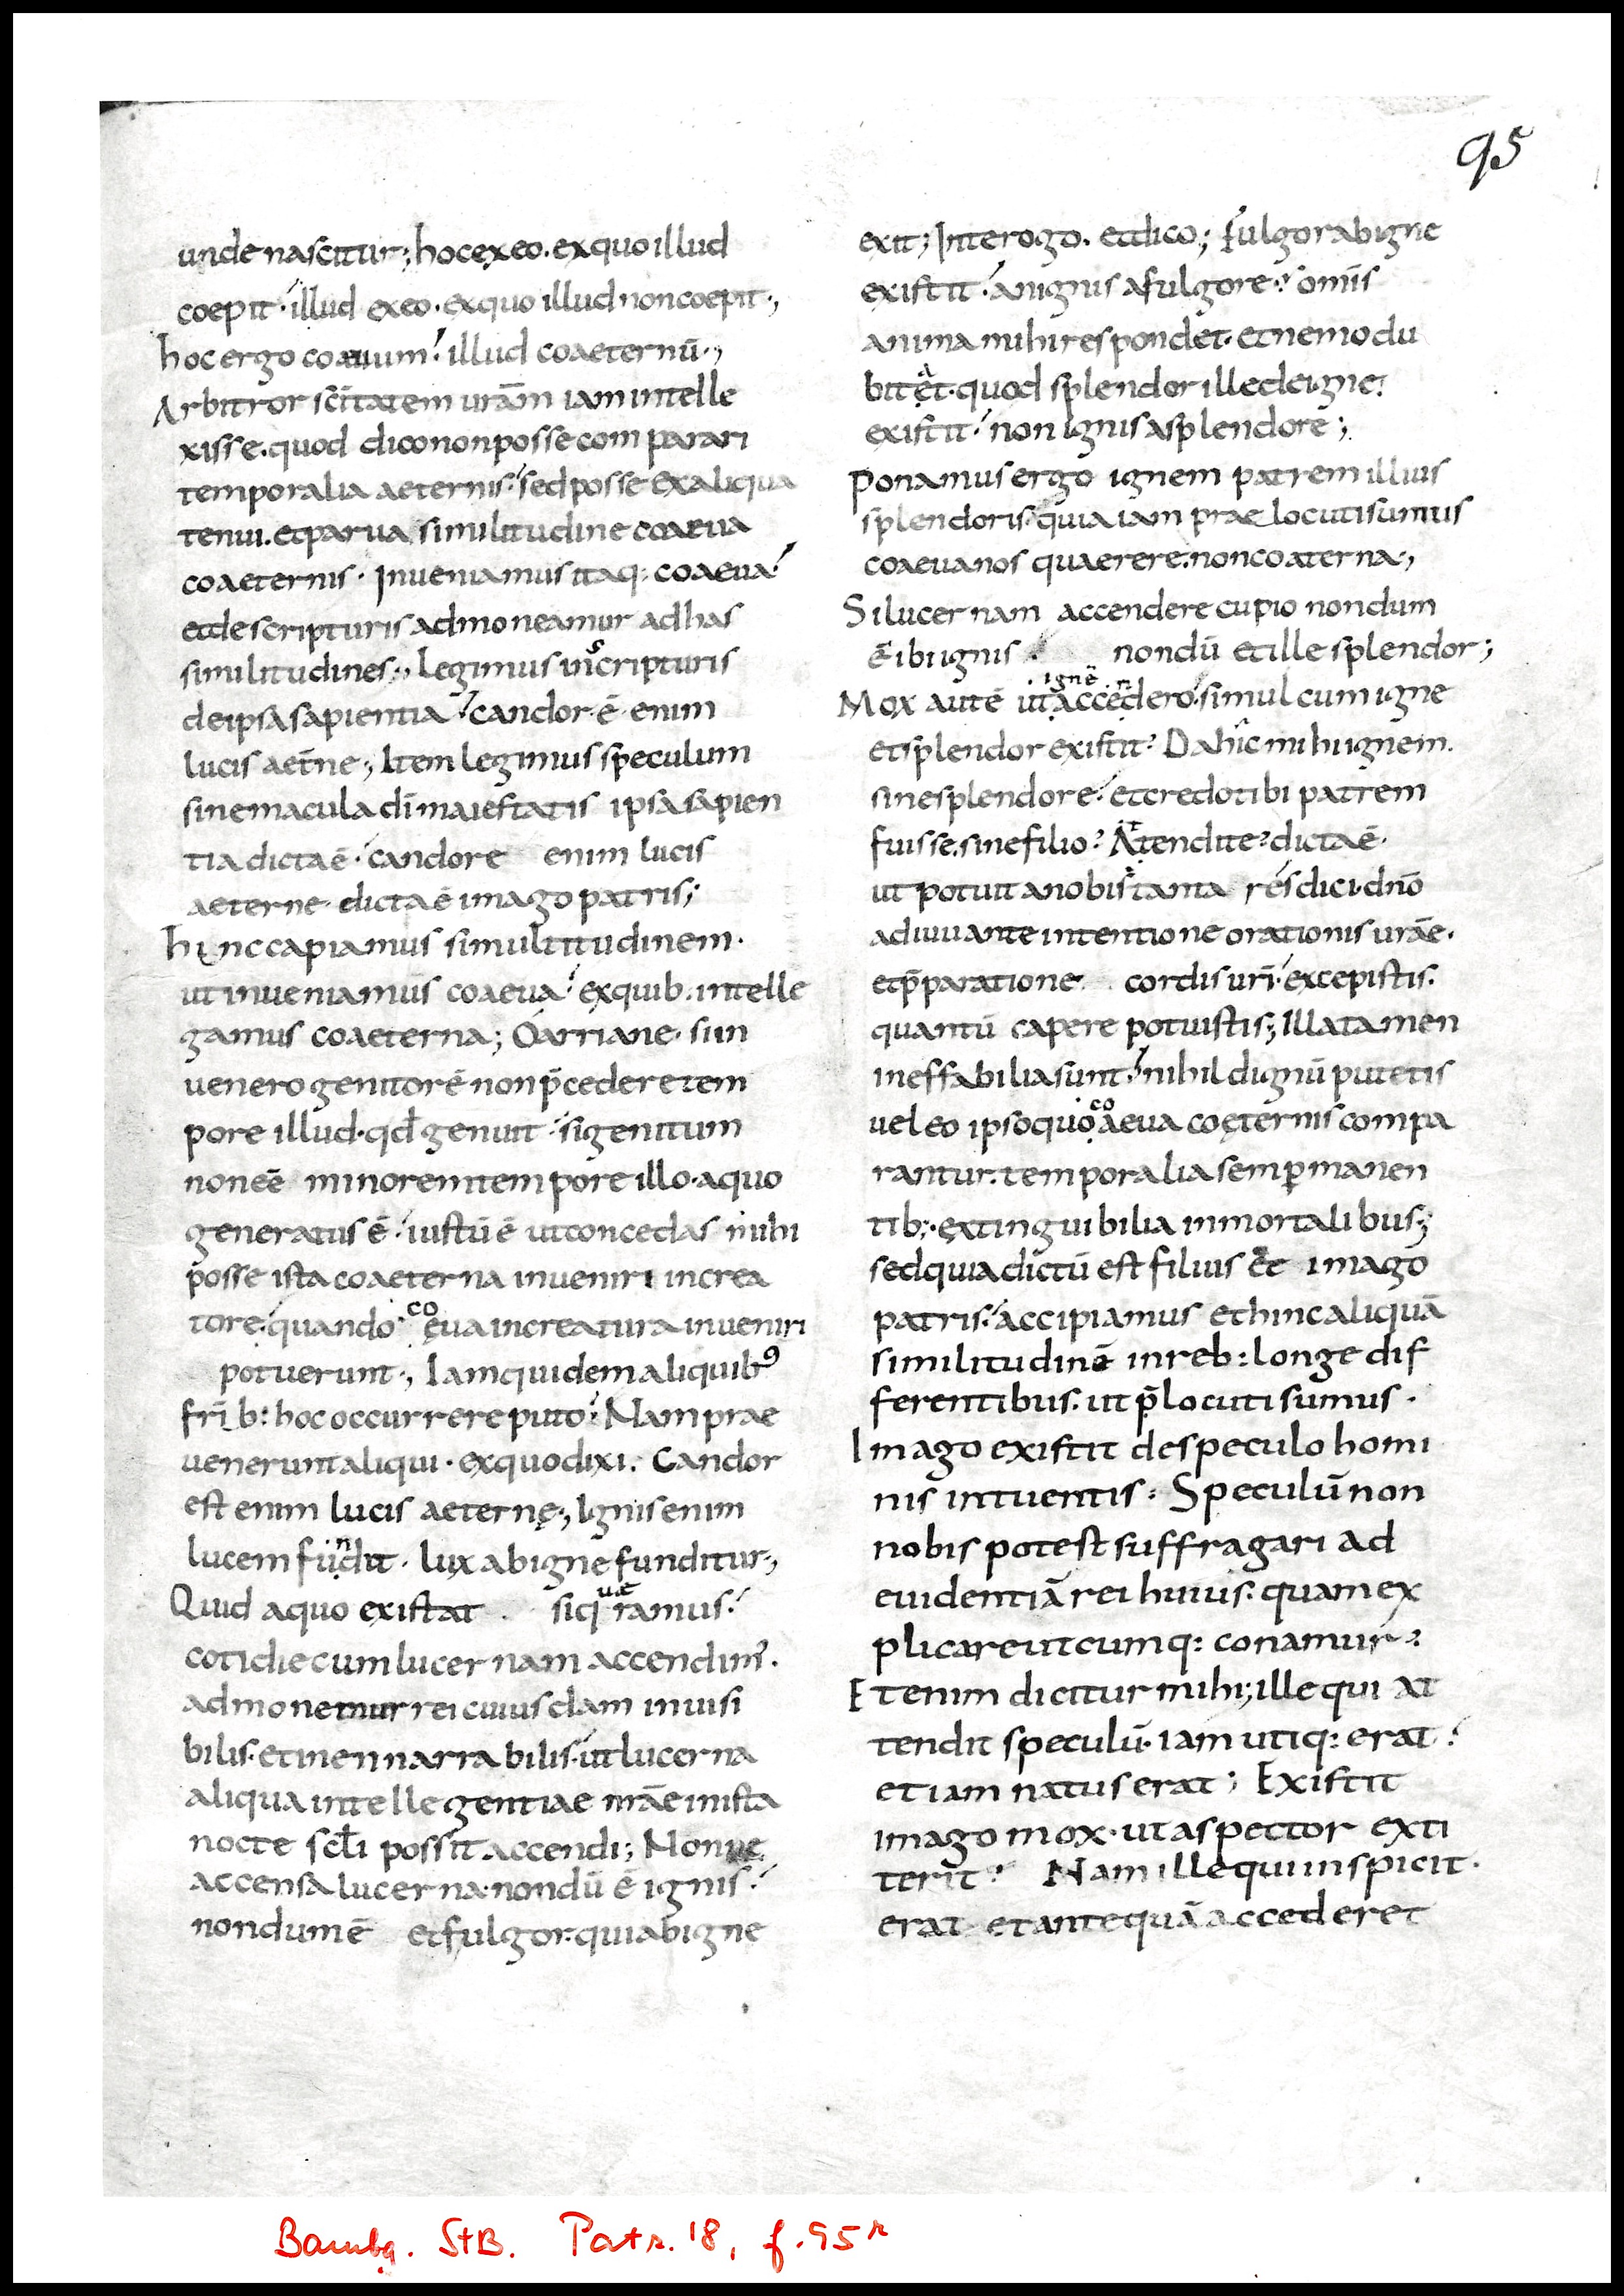 95
unde nascitur; hoc ex eo. ex quo illud
coepit· illud ex eo· ex quo illud non coepit·,
hoc ergo coaeuum· illud coaeternū·,
Arbitror sc̄itatem ur̄am iam intelle
xisse. quod dico non posse comparari
temporalia aeternis· sed posse ex aliqua
tenui. et parua similitudine coaeua
coaeternis· Inueniamus itaq: coaeua·
et de scripturis admoneamur ad has
similitudines·, Legimus in scripturis
de ipsa sapientia· candor· ē· enim
lucis aet̄ne·, Item legimus speculum
sine macula dī maiestatis ipsa sapien
tia dicta ē· candore enim lucis
aeterne· dicta ē imago patris;
hinc capiamus similitudinem·
ut inueniamus coaeua· ex quib. intelle
gamus coaeterna; O arriane· si in
uenero genitorē non p̄cedere tem
pore illud· qđ genuit· si genitum
non eē minorem tempore illo· a quo
generatus ē· iustū ē ut concedas mihi
posse ista coaeterna inueniri in crea
tore· quando coęua in creatura inueniri
potuerunt·, Iam quidem aliquib9
fr̄ib: hoc occurrere puto· Nam prae
uenerunt aliqui· ex quo dixi. Candor
est enim lucis aeternę·, Ignis enim
lucem fundit· lux ab igne funditur·,
Quid a quo existat· si quęramus·
cotidie cum lucernam accendim̄·
admonemur rei cuiusdam inuisi
bilis· et inennarrabilis· ut lucerna
aliqua intellegentiae nr̄ae in ista
nocte sc̄li possit accendi; Nonne
accensa lucerna· nondū ē ignis·
nondum ē et fulgor· qui ab igne
exit; Interogo. et dico; fulgor ab igne
existit· an ignis a fulgore·? om̄is
anima mihi respondet· et nemo du
bitat· quod splendor ille de igne·
existit· non ignis a splendore;
Ponamus ergo ignem patrem illius
splendoris· quia iam praelocuti sumus
coaeua nos quaerere. non coaterna·,
Si lucernam accendere cupio nondum
ē ibi ignis· nondū et ille splendor;
Mox autē ut ignē accendero· simul cum igne
et splendor existit· Da hic mihi ignem.
sine splendore· et credo tibi patrem
fuisse. sine filio? Attendite? dicta ē·
ut potuit a nobis tanta res dici· dn̄o
adiuuante intentione orationis ur̄ae·
et p̄paratione cordis ur̄i· excepistis.
quantū capere potuistis; Illa tamen
ineffabilia sunt· nihil dignū putetis
uel eo ipso quo coaeua coęternis compa
rantur. temporalia semp̄manen
tib;· extinguibilia inmortalibus;
sed quia dictū est filius et imago
patris· accipiamus et hinc aliquā
similitudinē in reb: longe dif
ferentibus. ut p̄locuti sumus·
Imago existit de speculo homi
nis intuentis: Speculū non
nobis potest suffragari ad
euidentiā rei huius. quam ex
plicare utcumq: conamur·:
Etenim dicitur mihi; ille qui at
tendit speculū· iam utiq: erat·
et iam natus erat; Existit
imago mox· ut aspector exti
terit· Nam ille qui inspicit·
erat et antequā accederet
Bambg. StB. Patr. 18, f. 95r